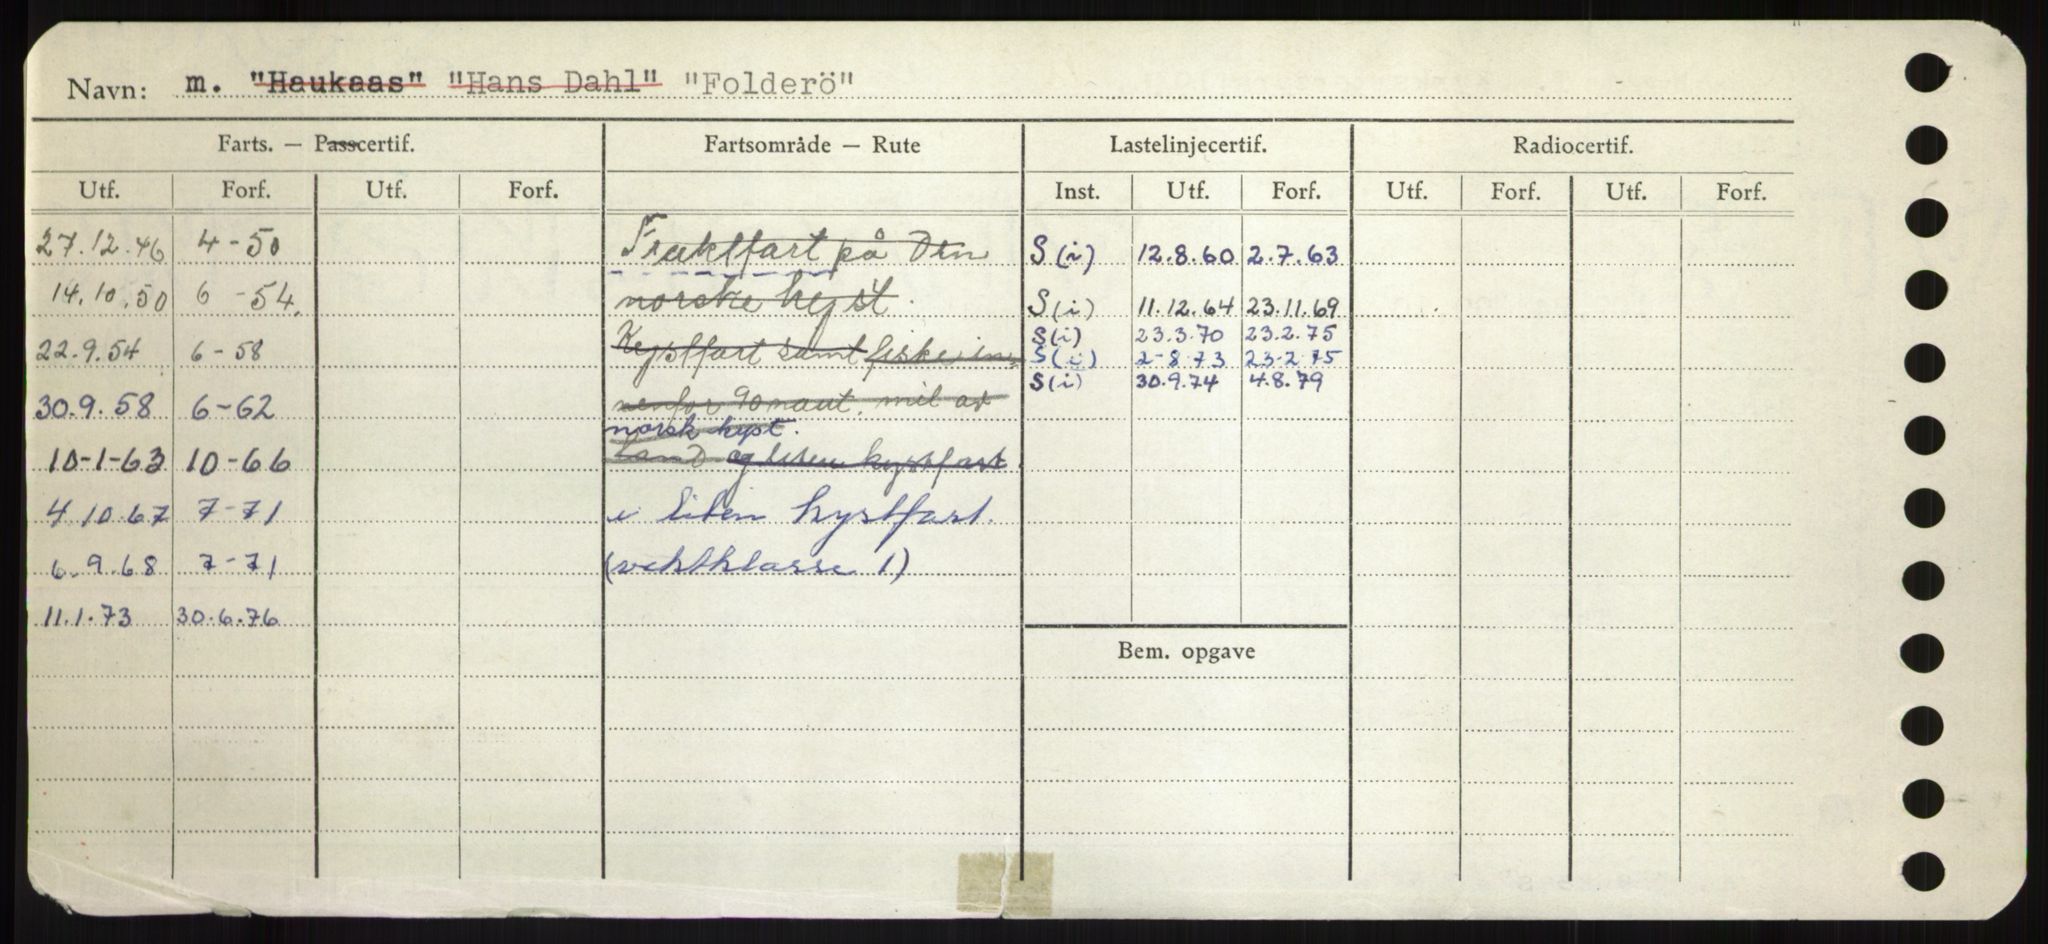 Navn: m. "Haukaas" "Hans Dahl" "Folderö"
Farts. — Passcertif. Fartsområde — Rute Lastelinjecertif. Radiocertif.
Utf. Forf. Utf. Forf. Inst. Utf. Forf. Utf. Forf. Utf. Forf.
27.12.46 4-50 Fraktfart på Den S(i) 12.8.60 2.7.63
14.10.50 6-54. norske kyst. S(i) 11.12.64 23.11.69
S(i) 23.3.70 23.2.75
22.9.54 6-58 Kystfart samt fiske in- S(i) 2-8.73 23.2.75
S(i) 30.9.74 4.8.79
30.9.58 6-62 nenfor 90 naut. mil av
norsk kyst.
10-1-63 10-66 Land og liten kystfart.
4.10.67 7-71 i liten kystfart.
6.9.68 7-71 (vektklasse 1)
11.1.73 30.6.76
Bem. opgave